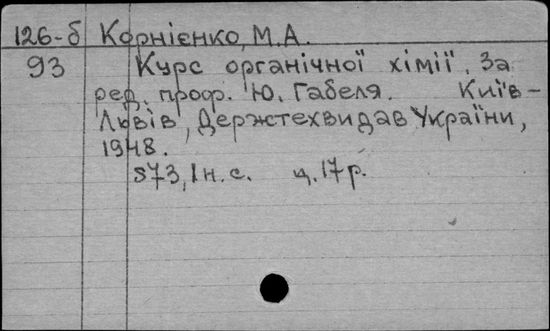 126-б Корнієнко, М.А.
93 Курс органічної хімії. За
ред. проф. Ю. Габеля. Київ-
Львів, Держтехвидав України,
1948.
573, 1н. с. ц. 17 р.